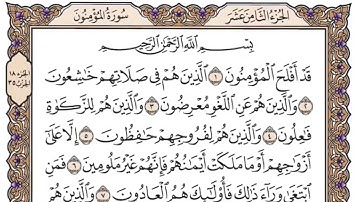 الجزء الثامن عشر سورة المؤمنون
بسم الله الرحمن الرحيم
قد أفلح المؤمنون ١ الذين هم في صلاتهم خاشعون
٢ والذين هم عن اللغو معرضون ٣ والذين هم للزكوة
فاعلون ٤ والذين هم لفروجهم حافظون ٥ إلا على
أزواجهم أو ما ملكت أيمانهم فإنهم غير ملومين ٦ فمن
ابتغى وراء ذلك فأولئك هم العادون ٧ والذين هم
الجزء ١٨
الحزب ٣٥